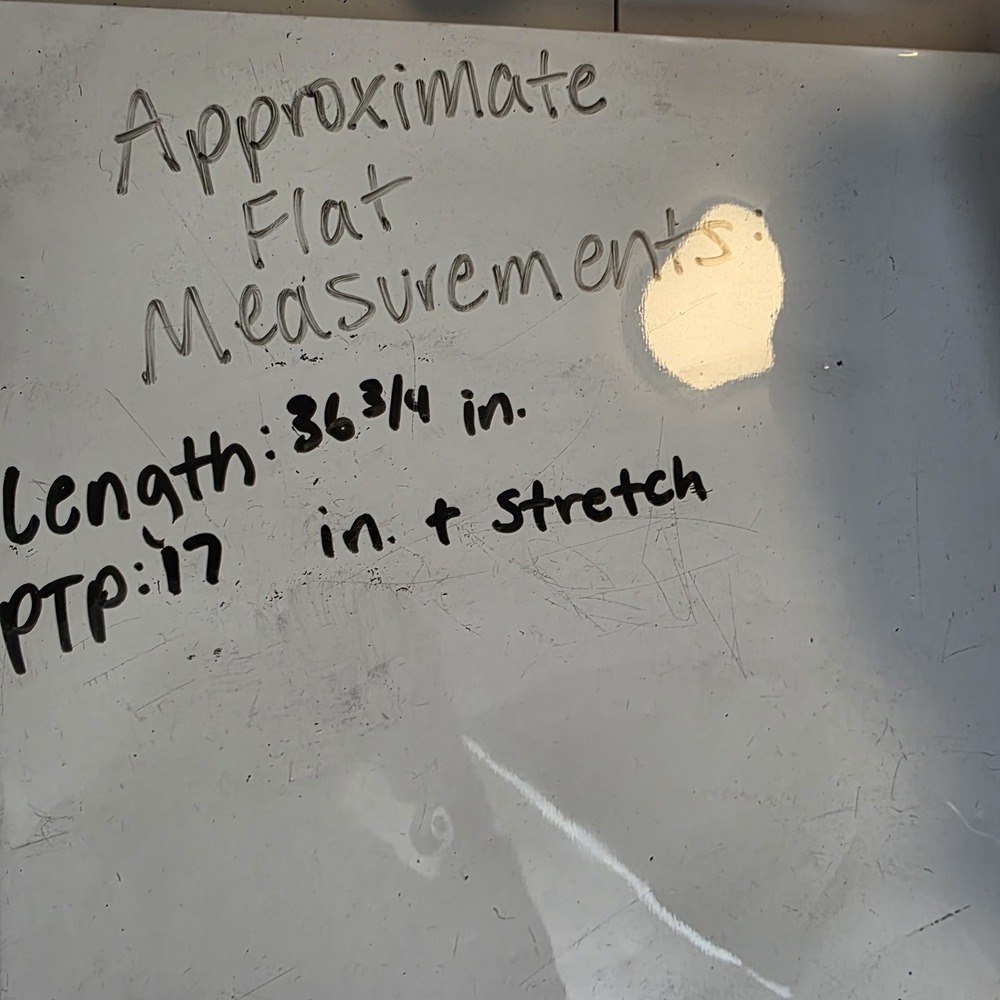 Approximate
Flat
Measurements:
Length: 36 3/4 in.
PTP: 17 in. + stretch